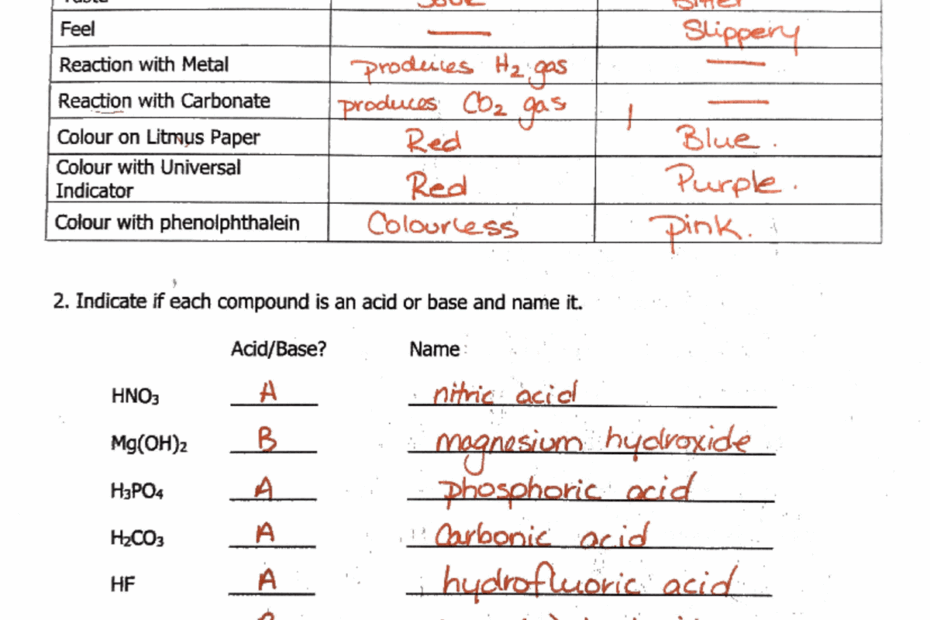 Taste Sour Bitter
Feel — Slippery
Reaction with Metal produces H₂ gas —
Reaction with Carbonate produces CO₂ gas —
Colour on Litmus Paper Red Blue.
Colour with Universal
Indicator Red Purple.
Colour with phenolphthalein Colourless Pink.
2. Indicate if each compound is an acid or base and name it.
Acid/Base? Name
HNO₃ A nitric acid
Mg(OH)₂ B magnesium hydroxide
H₃PO₄ A phosphoric acid
H₂CO₃ A Carbonic acid
HF A hydrofluoric acid